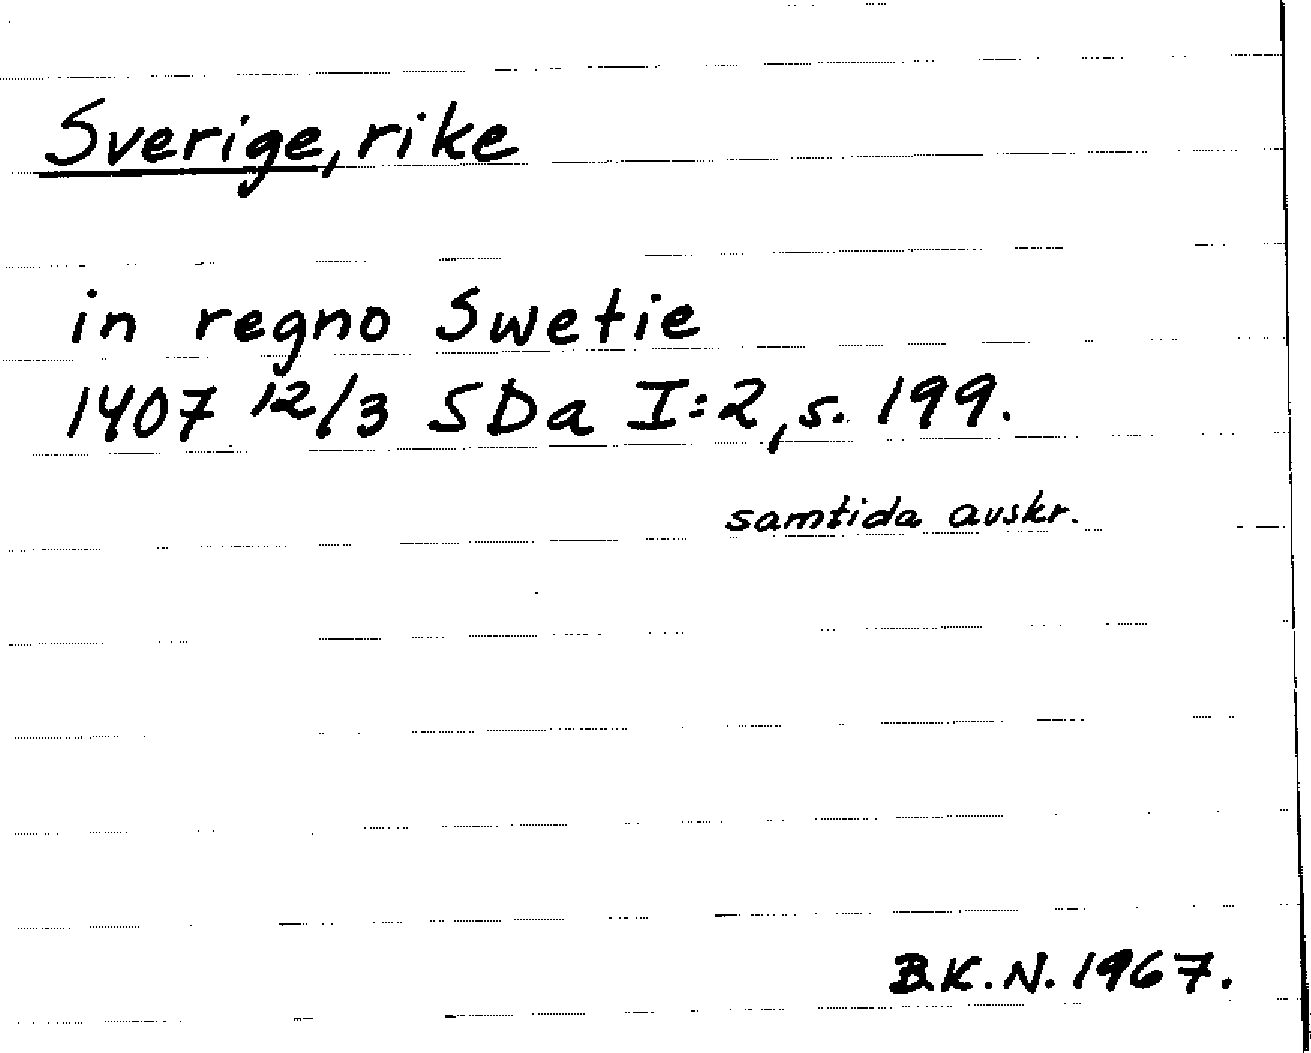 Sverige, rike
in regno Swetie
1407 12/3 SDa I:2, s. 199.
samtida avskr.
B.K.N. 1967.